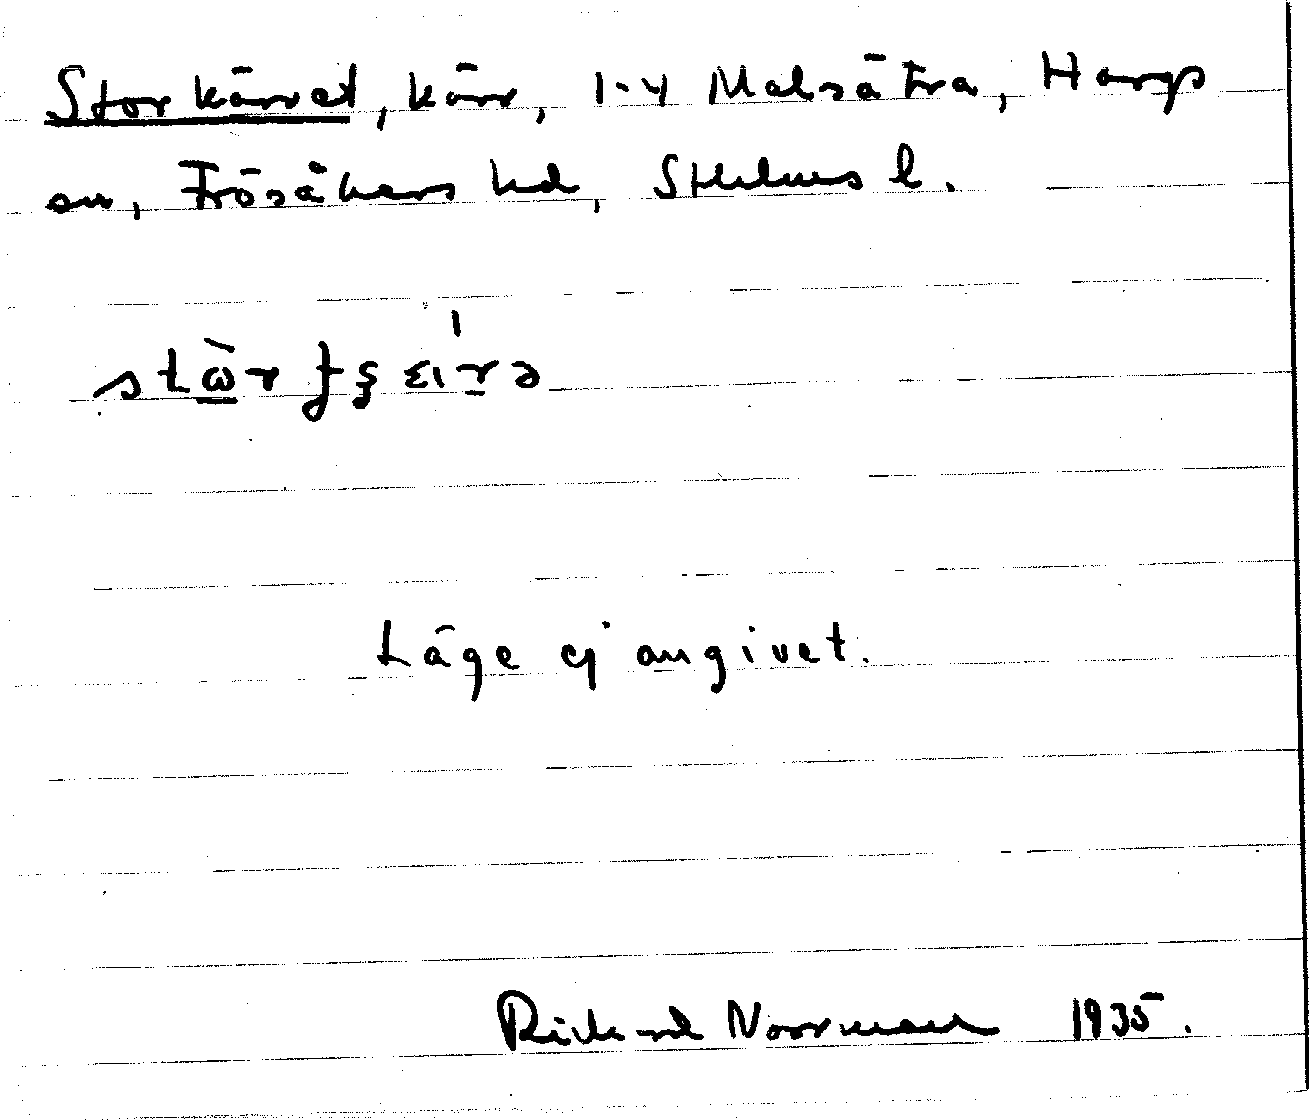 Storkärret, kärr, 1-4 Malsätra, Hargs
sn, Frösåkers hd, Sthlms l.
Läge ej angivet.
Rickard Norrman 1935.